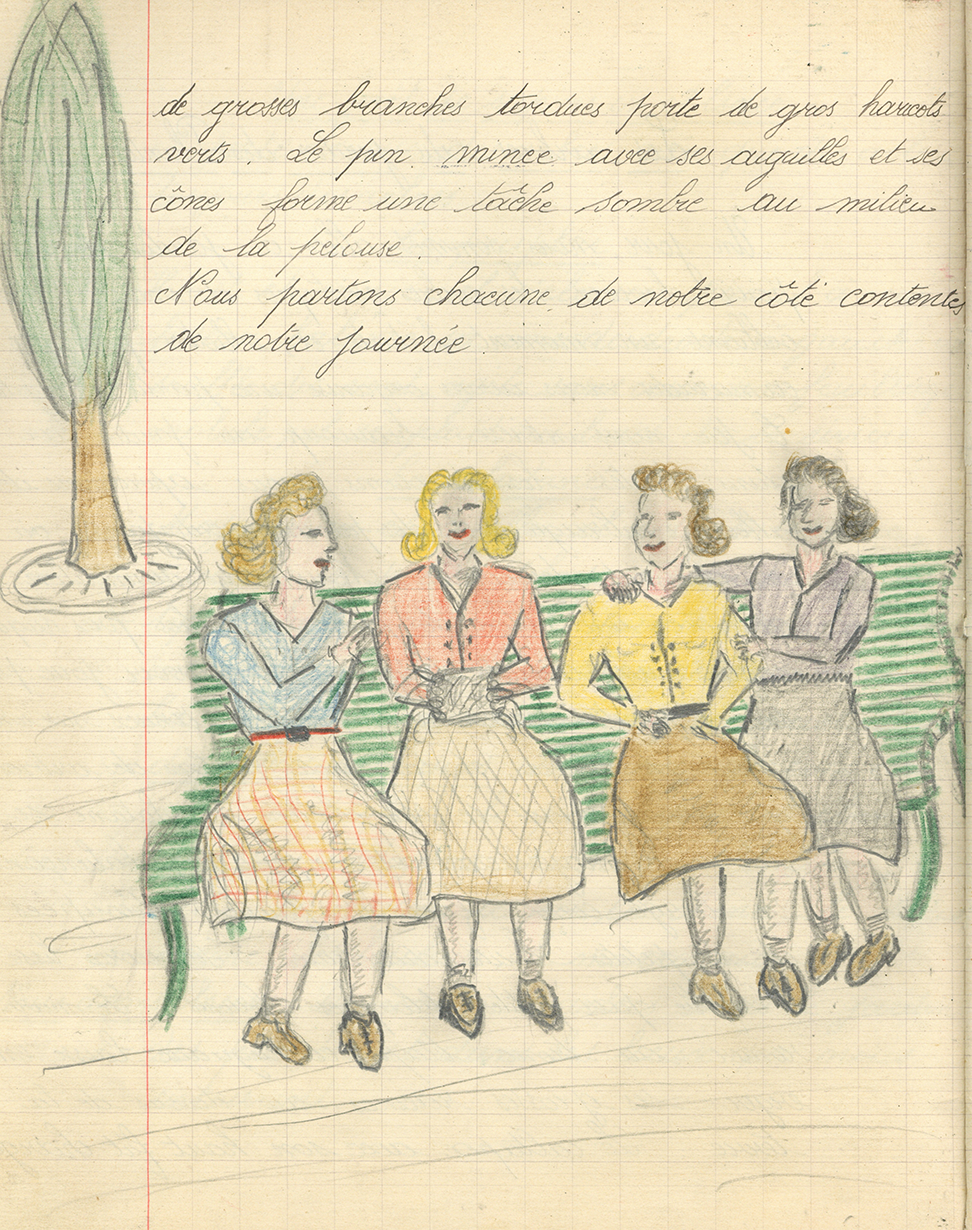 de grosses branches tordues porte de gros haricots
verts. Le pin mince avec ses aiguilles et ses
cônes forme une tâche sombre au milieu
de la pelouse.
Nous partons chacune de notre côté contentes
de notre journée.